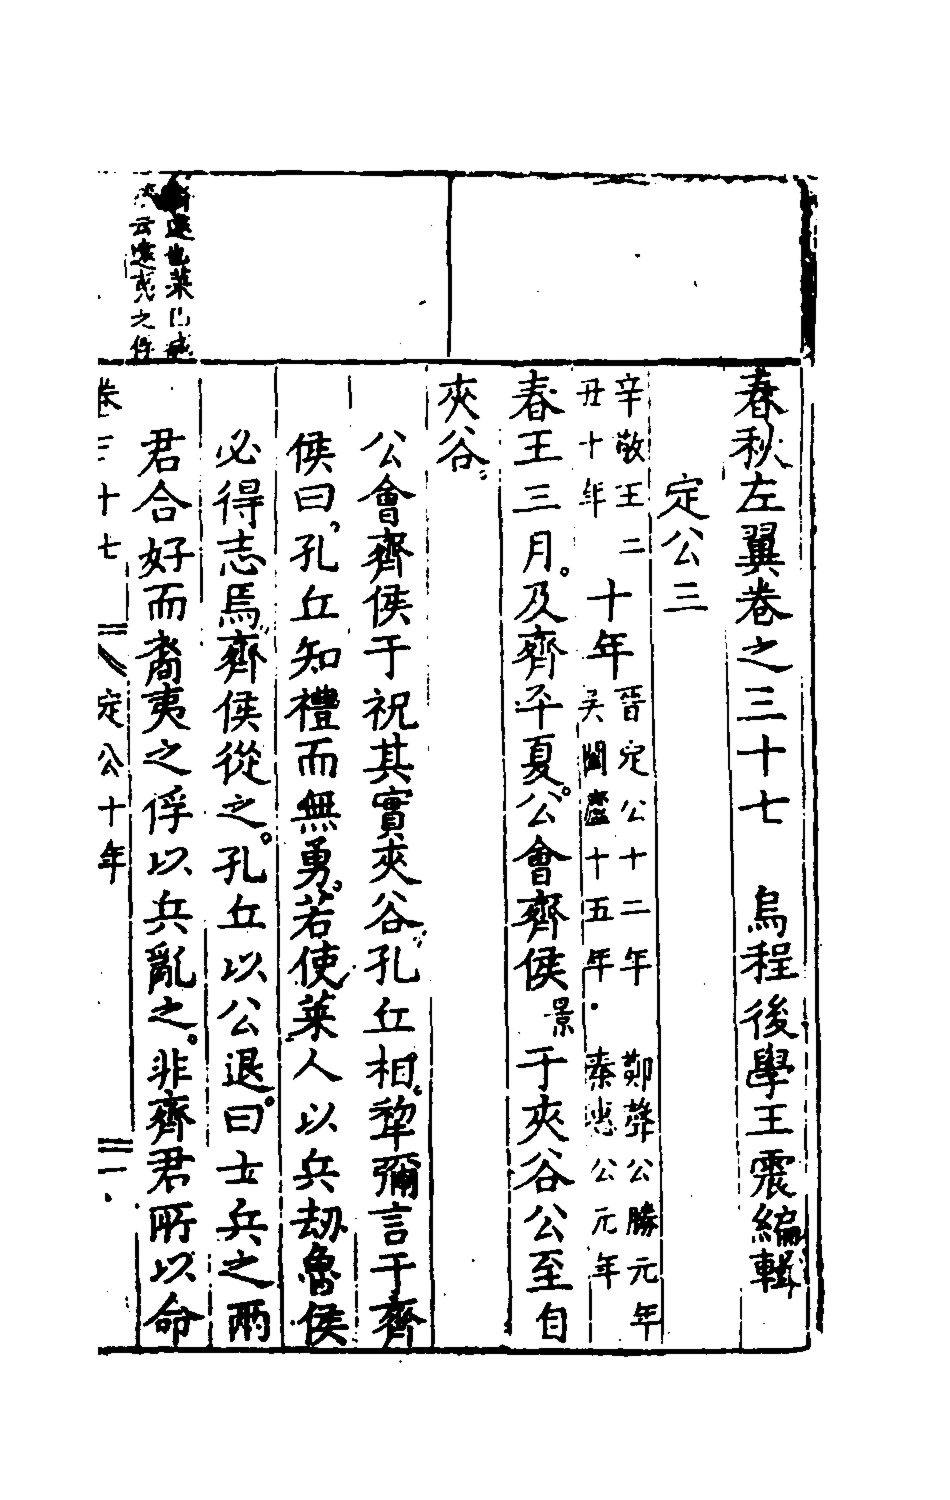 春秋左翼卷之三十七　烏程後學王震編輯
定公三
辛敬王二
丑十年
十年
晉定公十二年　鄭聲公勝元年
吳闔廬十五年　秦惠公元年
春王三月。及齊平夏。公會齊侯景于夾谷公至自
夾谷。
公會齊侯于祝其實夾谷孔丘相。犂彌言于齊
侯曰，孔丘知禮而無勇。若使萊人以兵劫魯侯
必得志焉齊侯從之。孔丘以公退曰。士兵之兩
君合好而裔夷之俘以兵亂之。非齊君所以命
遠也萊
云之俘
卷三十七　定公十年　一